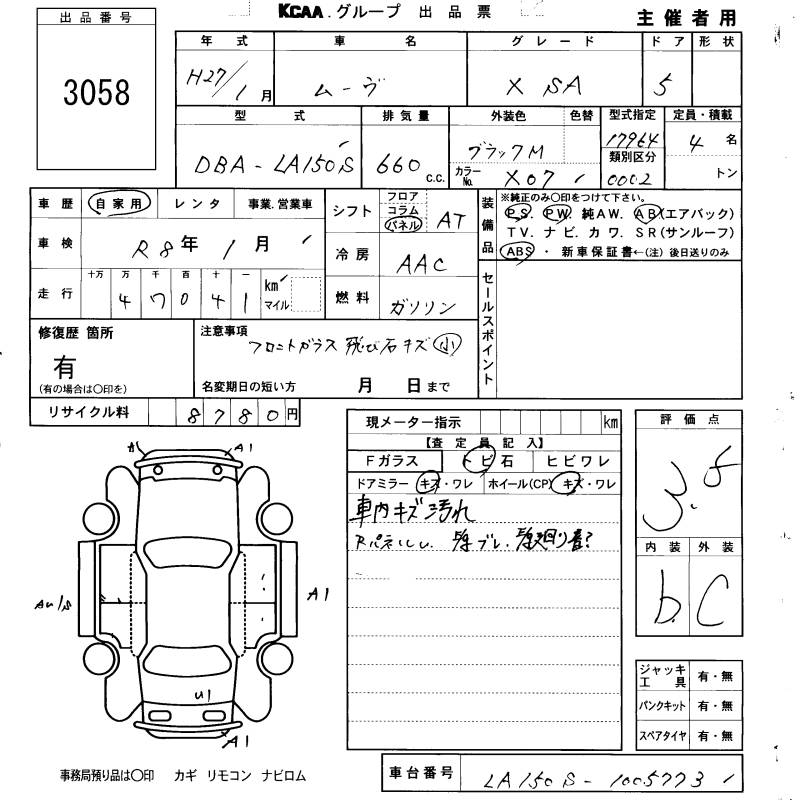 KCAA.グループ 出品票
主催者用
出品番号
3058
年式 車名 グレード ドア 形状
H27/1月 ムーヴ X SA 5
型式 排気量 外装色 色替 型式指定 定員・積載
DBA-LA150S 660 c.c. ブラックM 17964 4名
カラーNo. X07 類別区分 0002 トン
車歴 自家用 レンタ 事業.営業車
シフト フロア コラム パネル AT
装備品 ※純正のみ〇印をつけて下さい。
PS. PW. 純AW. AB(エアバック)
TV. ナビ. カワ. SR(サンルーフ)
ABS ・ 新車保証書←(注) 後日送りのみ
車検 R8年1月
冷房 AAC
走行 十万 万 千 百 十 一
47041 km マイル
燃料 ガソリン
セールスポイント
修復歴 箇所
有
(有の場合は〇印を)
注意事項
フロントガラス 飛び石キズ 小
名変期日の短い方 月 日まで
リサイクル料 8780円
現メーター指示 km
【査定員記入】
Fガラス トビ石 ヒビワレ
ドアミラー キズ・ワレ ホイール(CP) キズ・ワレ
車内キズ汚れ
評価点
3.5
内装 外装
b C
A A1
AU1S
A1
U1
A1
ジャッキ工具 有・無
パンクキット 有・無
スペアタイヤ 有・無
事務局預り品は〇印 カギ リモコン ナビロム
車台番号 LA150S-1005773